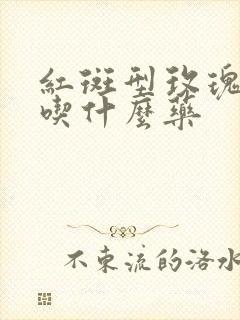 紅斑型玫瑰
喫什麼藥
不東流的洛水